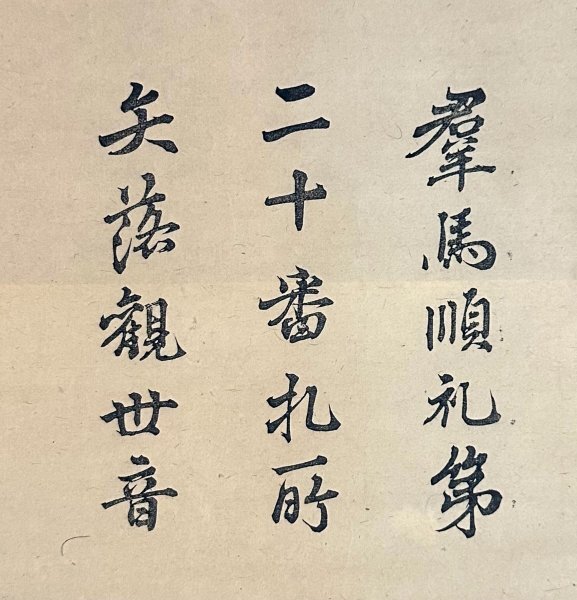 羣馬順礼第
二十番札所
矢落觀世音